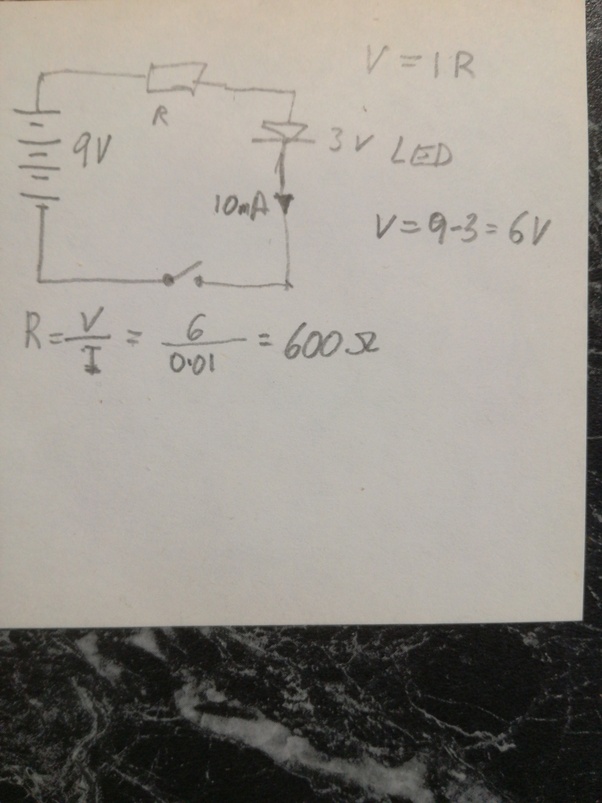 V = IR
R
9V
3V LED
10mA
V = 9-3 = 6V
R = V/I = 6/0.01 = 600Ω